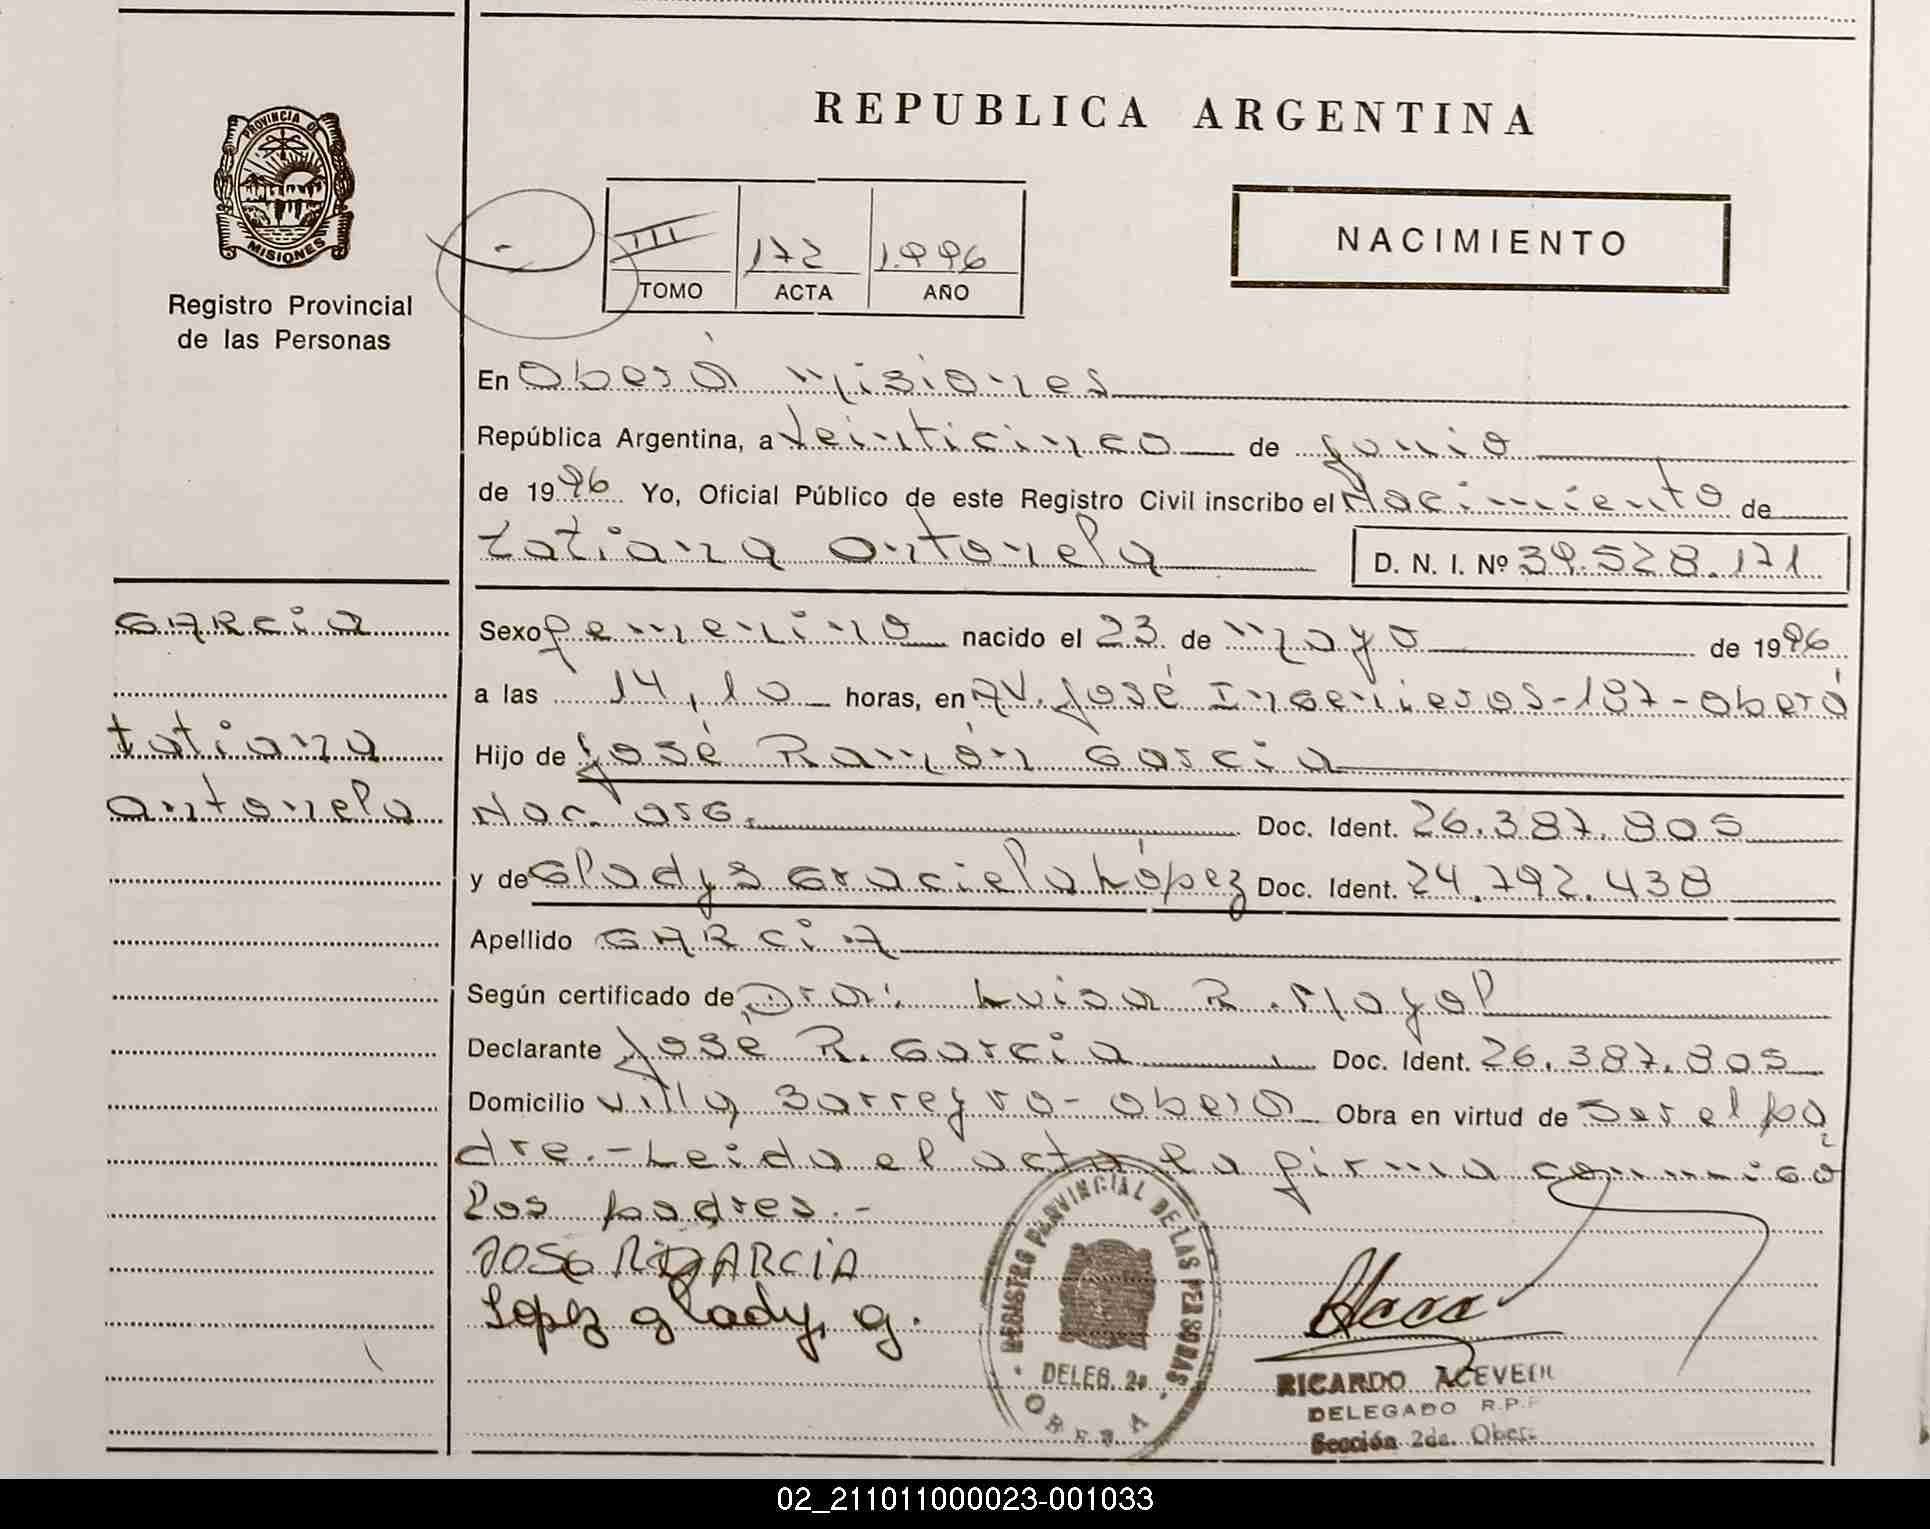 REPUBLICA ARGENTINA
PROVINCIA DE
MISIONES
Registro Provincial
de las Personas
III 172 1.996
TOMO ACTA AÑO
NACIMIENTO
En Oberá Misiones
República Argentina, a veinticinco de junio
de 1996 Yo, Oficial Público de este Registro Civil inscribo el Nacimiento de
tatiana antonela D. N. I. Nº 39.528.171
GARCIA
tatiana
antonela
Sexo femenino nacido el 23 de mayo de 1996
a las 14,10 horas, en AV. José Ingenieros-187-Oberá
Hijo de José Ramón Garcia
Nac. arg. Doc. Ident. 26.387.805
y de Gladys Graciela López Doc. Ident. 24.792.438
Apellido GARCIA
Según certificado de Dra: Luisa R. Mayol
Declarante José R. Garcia Doc. Ident. 26.387.805
Domicilio Villa Barreyro-Oberá Obra en virtud de ser el pa
dre.-Leida el acta la firma conmigo
los padres.-
JOSE R GARCIA
Lopez glady g.
REGISTRO PROVINCIAL DE LAS PERSONAS
DELEG. 2a
OBERA
RICARDO ACEVEDO
DELEGADO R.P.P
Sección 2da. Ober
02_211011000023-001033